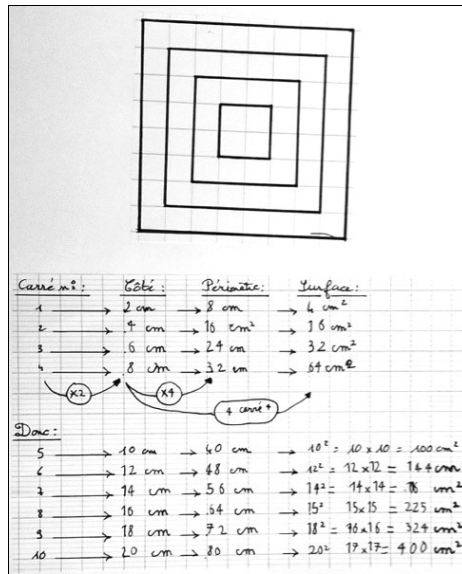 Carré n°: Côté: Périmètre: Surface:
1 → 2 cm → 8 cm → 4 cm²
2 → 4 cm → 16 cm² → 16 cm²
3 → 6 cm → 24 cm → 32 cm²
4 → 8 cm → 32 cm → 64 cm²
×2 ×4
"carré"
Donc:
5 → 10 cm → 40 cm → 10² = 10 × 10 = 100 cm²
6 → 12 cm → 48 cm → 12² = 12 × 12 = 144 cm
7 → 14 cm → 56 cm → 14² = 14 × 14 = cm²
8 → 16 cm → 64 cm → 15² 15 × 15 = 225 cm²
9 → 18 cm → 72 cm → 18² = 16 × 16 = 324 cm²
10 → 20 cm → 80 cm → 20² 17 × 17 = 400 cm²